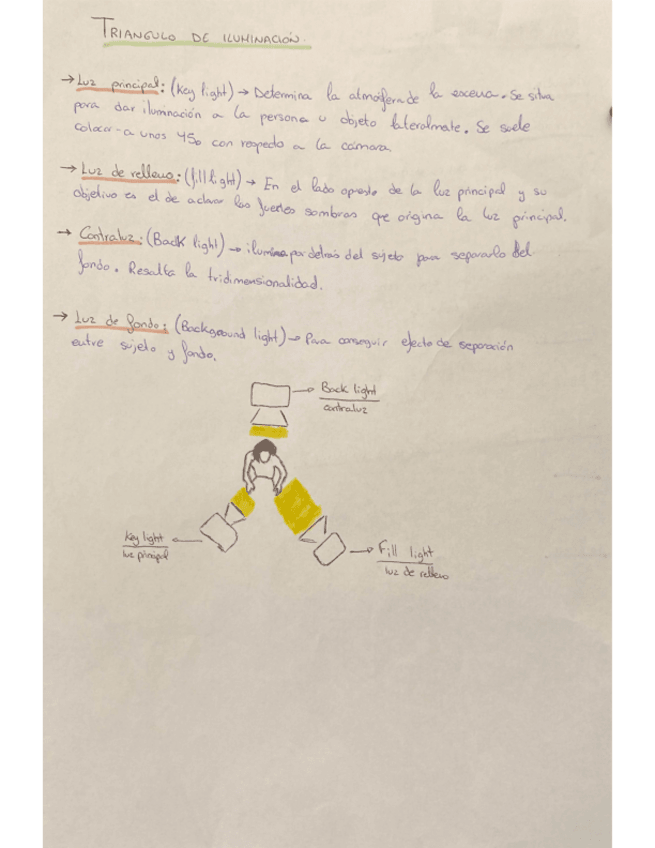 TRIANGULO DE ILUMINACIÓN.
→ Luz principal: (Key light) → Determina la atmósfera de la escena. Se situa
para dar iluminación a la persona u objeto lateralmate. Se suele
colocar-a unos 45º con respecto a la cámara.
→ Luz de relleno: (fill light) → En el lado opuesto de la luz principal y su
objetivo es el de aclarar las fuertes sombras que origina la luz principal.
→ Contraluz: (Back light) → ilumina por detrás del sujeto para separarlo del
fondo. Resalta la tridimensionalidad.
→ Luz de fondo: (Background light) → Para conseguir efecto de separación
entre sujeto y fondo.
Back light
contraluz
Key light
luz principal
Fill light
luz de relleno